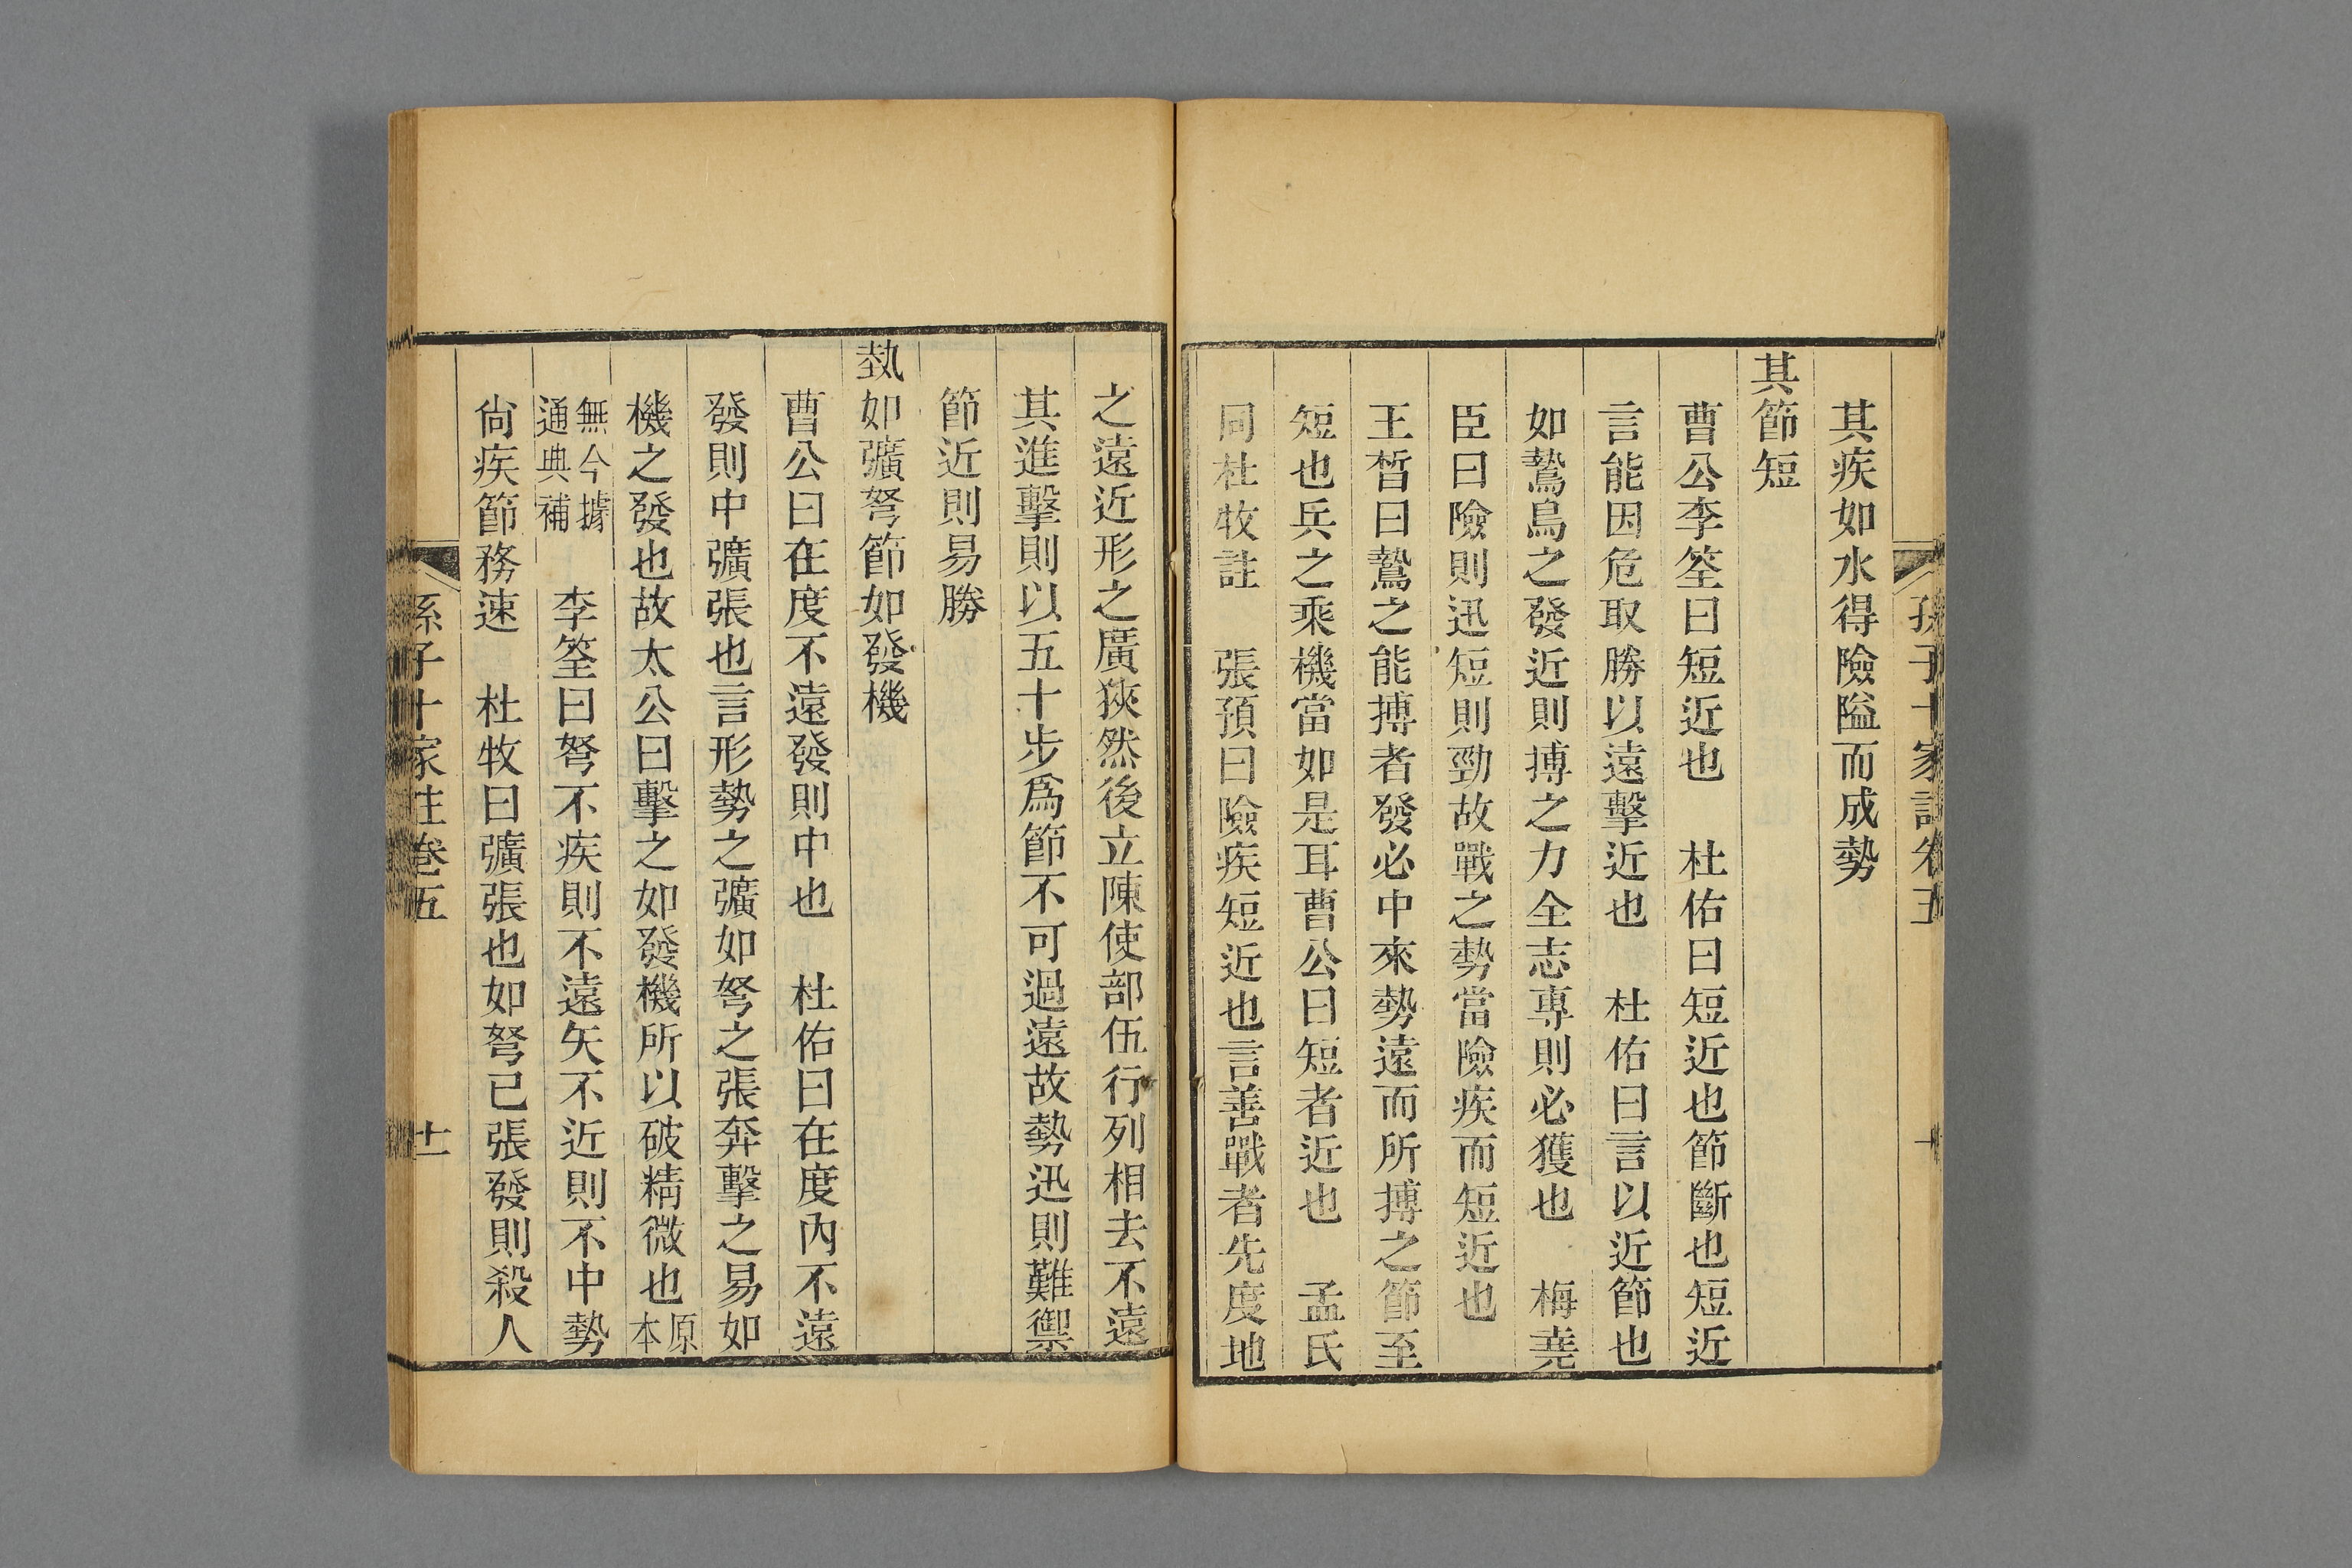 孫子十家註卷五
十
其疾如水得險隘而成勢
其節短
曹公李筌曰短近也　杜佑曰短近也節斷也短近
言能因危取勝以遠擊近也　杜佑曰言以近節也
如鷙鳥之發近則搏之力全志專則必獲也　梅堯
臣曰險則迅短則勁故戰之勢當險疾而短近也
王晳曰鷙之能搏者發必中來勢遠而所搏之節至
短也兵之乘機當如是耳曹公曰短者近也　孟氏
同杜牧註　張預曰險疾短近也言善戰者先度地
之遠近形之廣狹然後立陳使部伍行列相去不遠
其進擊則以五十步爲節不可過遠故勢迅則難禦
節近則易勝
埶如彍弩節如發機
曹公曰在度不遠發則中也　杜佑曰在度內不遠
發則中彍張也言形勢之彍如弩之張奔擊之易如
機之發也故太公曰擊之如發機所以破精微也原本
無今據通典補　李筌曰弩不疾則不遠矢不近則不中勢
尙疾節務速　杜牧曰彍張也如弩已張發則殺人
孫子十家註卷五
十一